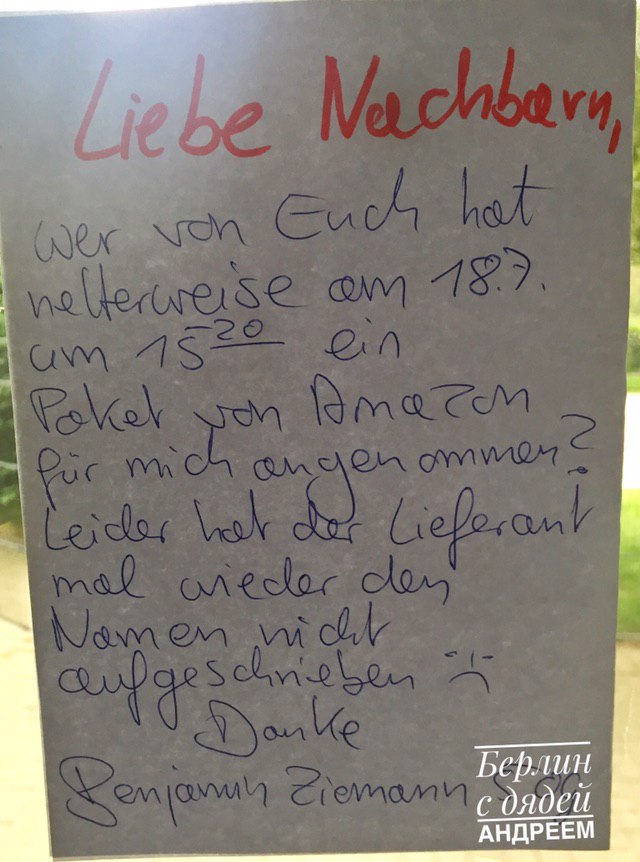 Liebe Nachbarn,
wer von Euch hat
netterweise am 18.7.
um 15 20 ein
Paket von Amazon
für mich angenommen?
Leider hat der Lieferant
mal wieder den
Namen nicht
aufgeschrieben
Danke
Benjamin Ziemann
Берлин
с дядей
АНДРЕЕМ